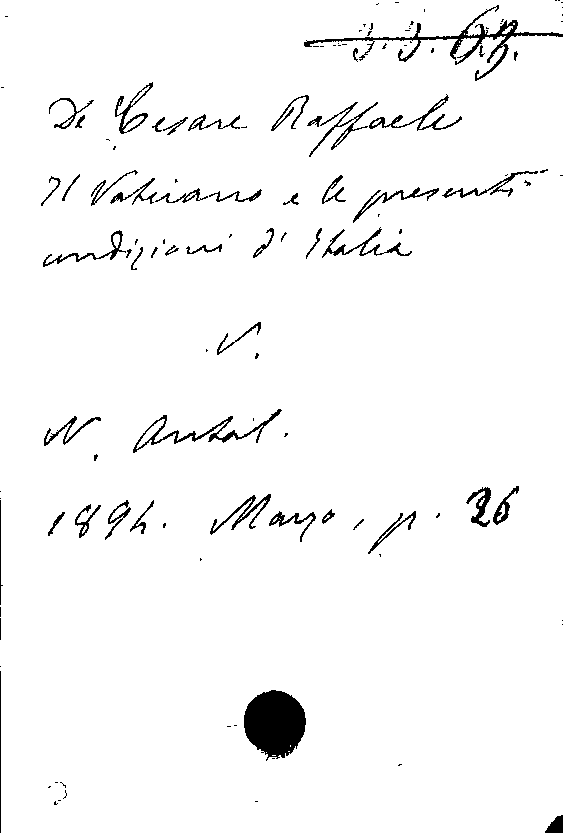 3.3.63.
De Cesare Raffaele
Il Vaticano e le presenti
condizioni d'Italia
V.
N. Antol.
1894. Marzo, p. 26